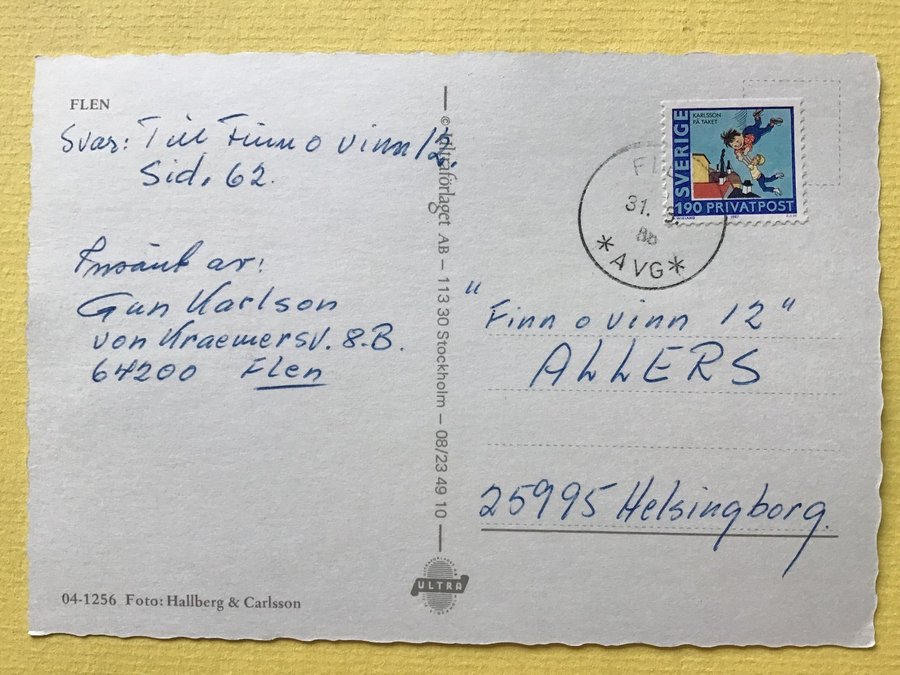 FLEN
Svar: Till Finn o vinn 12
Sid. 62.
Insänt av:
Gun Karlson
von Kraemersv. 8.B.
64200 Flen
04-1256 Foto: Hallberg & Carlsson
förlaget AB – 113 30 Stockholm – 08/23 49 10
ULTRA
SVERIGE
KARLSSON
PÅ TAKET
190 PRIVATPOST
31.
*AVG*
"Finn o vinn 12"
ALLERS
25995 Helsingborg.